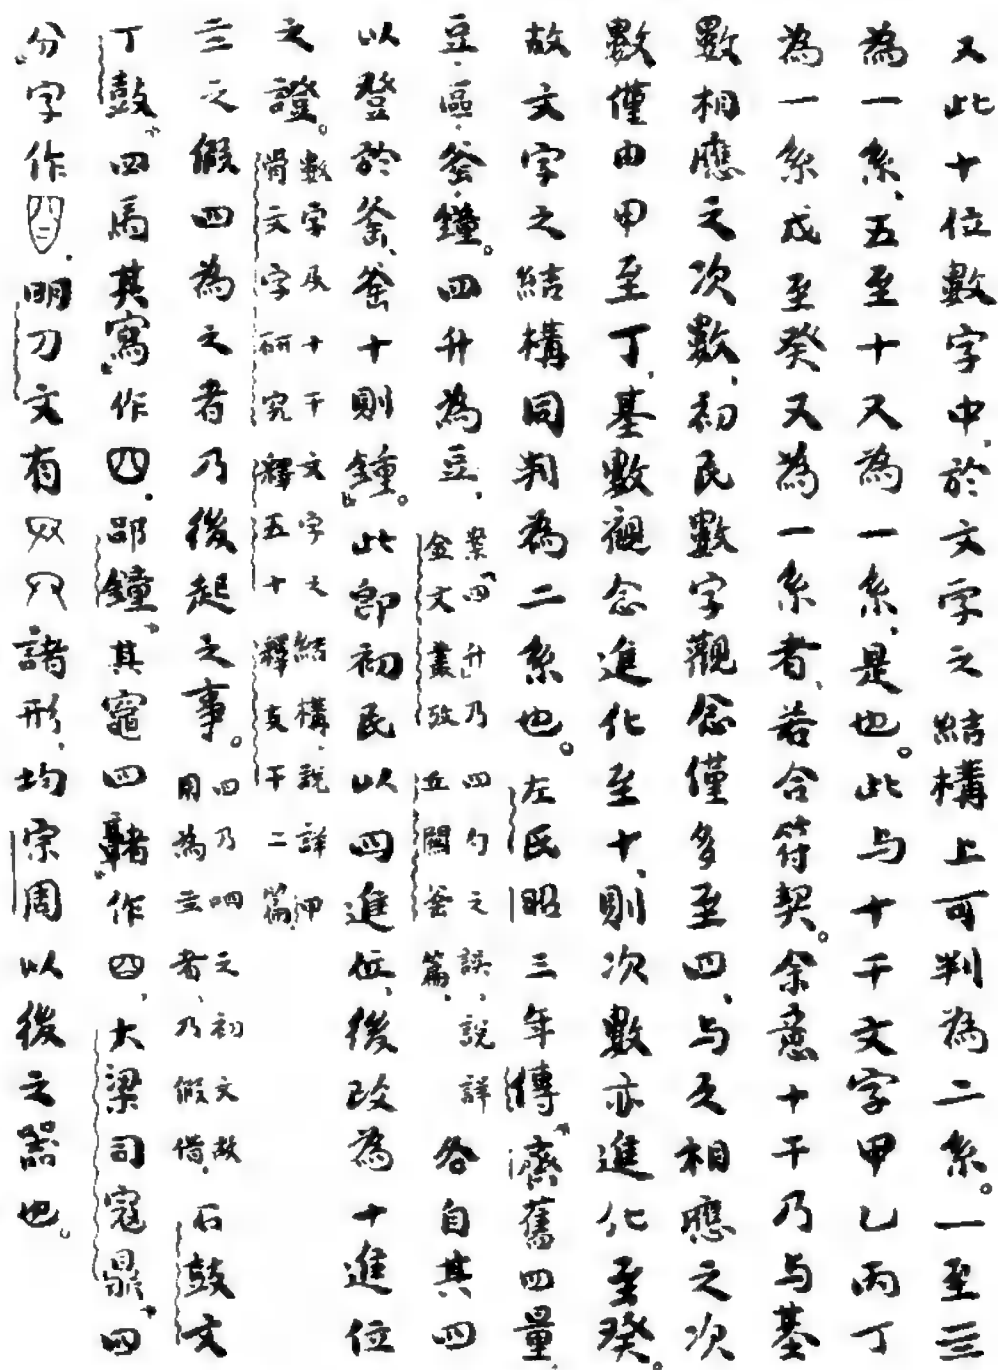 又此十位數字中,於文字之結構上可判為二系。一至亖
為一系,五至十又為一系,是也。此与十干文字甲乙丙丁
為一系戊至癸又為一系者,若合符契。余意十干乃与基
數相應之次數,初民數字觀念僅多至四,与之相應之次
數僅由甲至丁,基數觀念進化至十,則次數亦進化至癸。
故文字之結構同判為二系也。左氏昭三年傳「齊舊四量,
豆·區·釜·鐘。四升為豆,案「四升」乃四勺之誤,說詳金文叢攷丘關釜篇,各自其四
以登於釜,釜十則鍾」。此即初民以四進位,後改為十進位
之證。數字及十干文字之結構,說詳甲骨文字研究釋五十釋支干二篇,
亖之假四為之者乃後起之事。四乃呬之初文故用為亖者,乃假借,石鼓文
丁鼓「四馬其寫」作四,郘鐘「其竈四鞛」作四,大梁司寇鼎「四
分」字作四,明刀文有諸形,均宗周以後之器也。